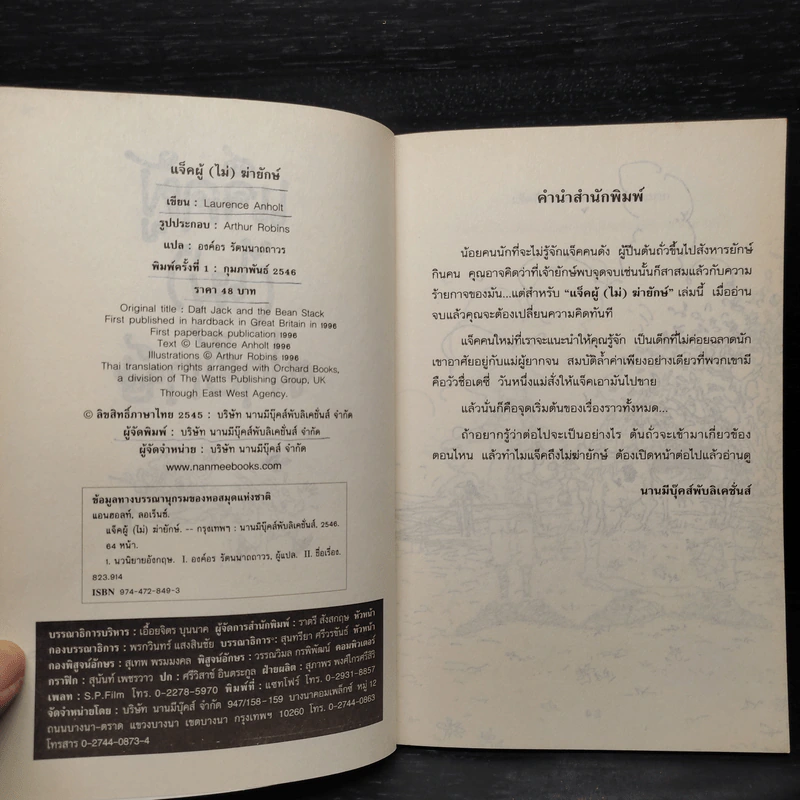 แจ็คผู้ (ไม่) ฆ่ายักษ์
เขียน : Laurence Anholt
รูปประกอบ : Arthur Robins
แปล : องค์อร รัตนนาถถาวร
พิมพ์ครั้งที่ 1 : กุมภาพันธ์ 2546
ราคา 48 บาท
Original title : Daft Jack and the Bean Stack
First published in hardback in Great Britain in 1996
First paperback publication 1996
Text © Laurence Anholt 1996
Illustrations © Arthur Robins 1996
Thai translation rights arranged with Orchard Books,
a division of The Watts Publishing Group, UK
Through East West Agency.
© ลิขสิทธิ์ภาษาไทย 2545 : บริษัท นานมีบุ๊คส์พับลิเคชั่นส์ จำกัด
ผู้จัดพิมพ์ : บริษัท นานมีบุ๊คส์พับลิเคชั่นส์ จำกัด
ผู้จัดจำหน่าย : บริษัท นานมีบุ๊คส์ จำกัด
www.nanmeebooks.com
ข้อมูลทางบรรณานุกรมของหอสมุดแห่งชาติ
แอนฮอลท์, ลอเร็นซ์.
แจ็คผู้ (ไม่) ฆ่ายักษ์. -- กรุงเทพฯ : นานมีบุ๊คส์พับลิเคชั่นส์, 2546.
64 หน้า.
1. นวนิยายอังกฤษ. I. องค์อร รัตนนาถถาวร, ผู้แปล. II. ชื่อเรื่อง.
823.914
ISBN 974-472-849-3
บรรณาธิการบริหาร : เอื้อยจิตร บุนนาค ผู้จัดการสำนักพิมพ์ : ราตรี สังสกฤษ หัวหน้า
กองบรรณาธิการ : พรกวินทร์ แสงสินชัย บรรณาธิการ : สุนทรียา ศรีวรขันธ์ หัวหน้า
กองพิสูจน์อักษร : สุเทพ พรมมงคล พิสูจน์อักษร : วรรณวิมล กรพิพัฒน์ คอมพิวเตอร์
กราฟิก : สุนันท์ เพชรวาว ปก : ศรีวิสาข์ อินตระกูล ฝ่ายผลิต : สุภาพร พงศ์ไกรศรีสิริ
เพลท : S.P.Film โทร. 0-2278-5970 พิมพ์ที่ : แซทโฟร์ โทร. 0-2931-8857
จัดจำหน่ายโดย : บริษัท นานมีบุ๊คส์ จำกัด 947/158-159 บางนาคอมเพล็กซ์ หมู่ 12
ถนนบางนา-ตราด แขวงบางนา เขตบางนา กรุงเทพฯ 10260 โทร. 0-2744-0863
โทรสาร 0-2744-0873-4
คำนำสำนักพิมพ์
น้อยคนนักที่จะไม่รู้จักแจ็คคนดัง ผู้ปีนต้นถั่วขึ้นไปสังหารยักษ์
กินคน คุณอาจคิดว่าที่เจ้ายักษ์พบจุดจบเช่นนั้นก็สาสมแล้วกับความ
ร้ายกาจของมัน...แต่สำหรับ “แจ็คผู้ (ไม่) ฆ่ายักษ์” เล่มนี้ เมื่ออ่าน
จบแล้วคุณจะต้องเปลี่ยนความคิดทันที
แจ็คคนใหม่ที่เราจะแนะนำให้คุณรู้จัก เป็นเด็กที่ไม่ค่อยฉลาดนัก
เขาอาศัยอยู่กับแม่ผู้ยากจน สมบัติล้ำค่าเพียงอย่างเดียวที่พวกเขามี
คือวัวชื่อเดซี่ วันหนึ่งแม่สั่งให้แจ็คเอามันไปขาย
แล้วนั่นก็คือจุดเริ่มต้นของเรื่องราวทั้งหมด...
ถ้าอยากรู้ว่าต่อไปจะเป็นอย่างไร ต้นถั่วจะเข้ามาเกี่ยวข้อง
ตอนไหน แล้วทำไมแจ็คถึงไม่ฆ่ายักษ์ ต้องเปิดหน้าต่อไปแล้วอ่านดู
นานมีบุ๊คส์พับลิเคชั่นส์